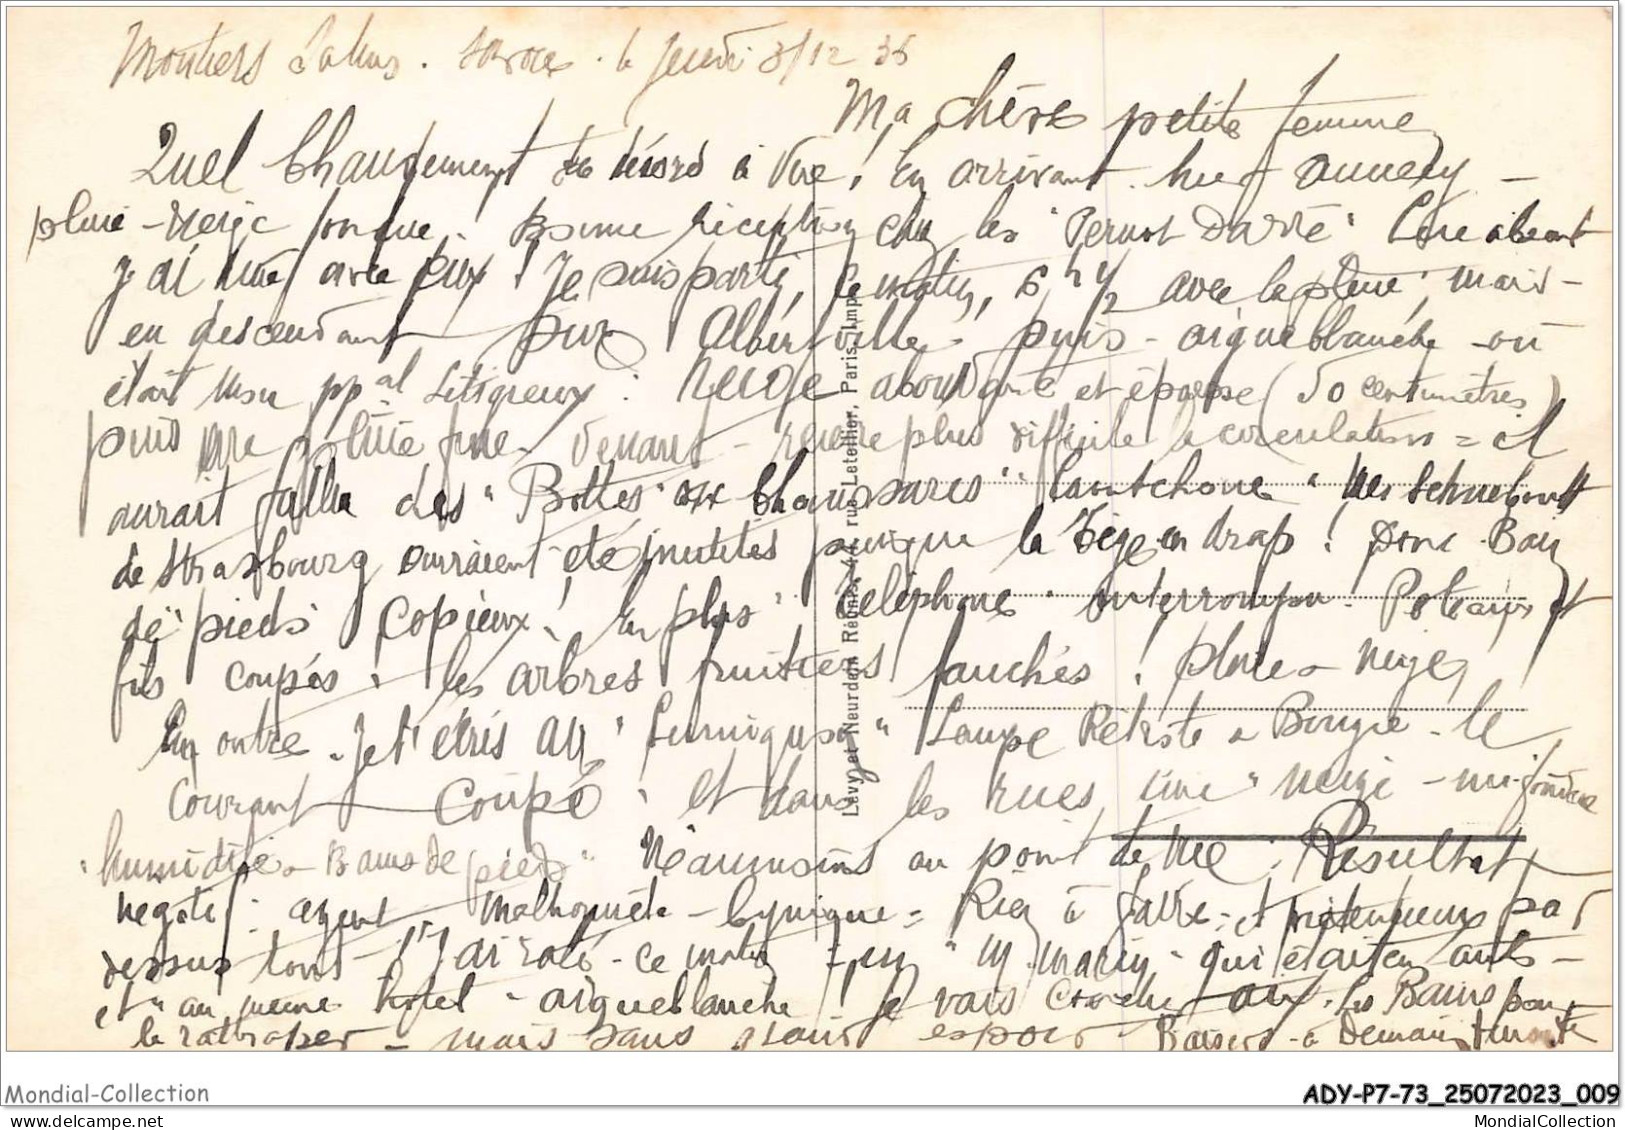 Moutiers Salins. Savoie. le Jeudi 3/12 36
Ma chère petite femme
Quel Changement de décors à Vue! En arrivant hier annecy -
pluie - Neige fondue. Bonne réception chez les "Pernot Darré"
j'ai diné avec Eux! Je suis parti, ce matin, 6 h 1/2 avec la pluie mais -
en descendant sur Albertville - puis - aigueblanche - où
était mon pp.al Litigieux: NEIGE abondante et épaisse (50 centimètres)
puis une pluie fine - venant - rendre plus difficile la circulation = il
aurait fallu des "Bottes" ou Chaussures "Caoutchouc"
de Strasbourg auraient été inutiles puisque la tige en drap! Donc Bain
de pieds Copieux! En plus téléphone interrompu. Poteaux et
fils coupés. les arbres fruitiers fauchés! pluie - neige,
En outre. Je t'écris au Lampe Bougie - le
Courant - Coupé. Et dans les rues, une neige - mi-fondue
"humidité - Bains de pieds" Néanmoins au point de vue: Résultat
negatif: agent Malhonnête - Cynique = Rien à faire - et par
dessus tout - J'ai raté - ce matin - un "M. marin" - qui était en auto -
et "au meme hotel - aigueblanche Je vais Coucher aix. les Bains pour
le rattraper - mais sans grand espoir Baisers - à Demain
Lévy et Neurdein Réunis, 44, rue Letellier, Paris. Imp.
Mondial-Collection
ADY-P7-73_25072023_009
MondialCollection